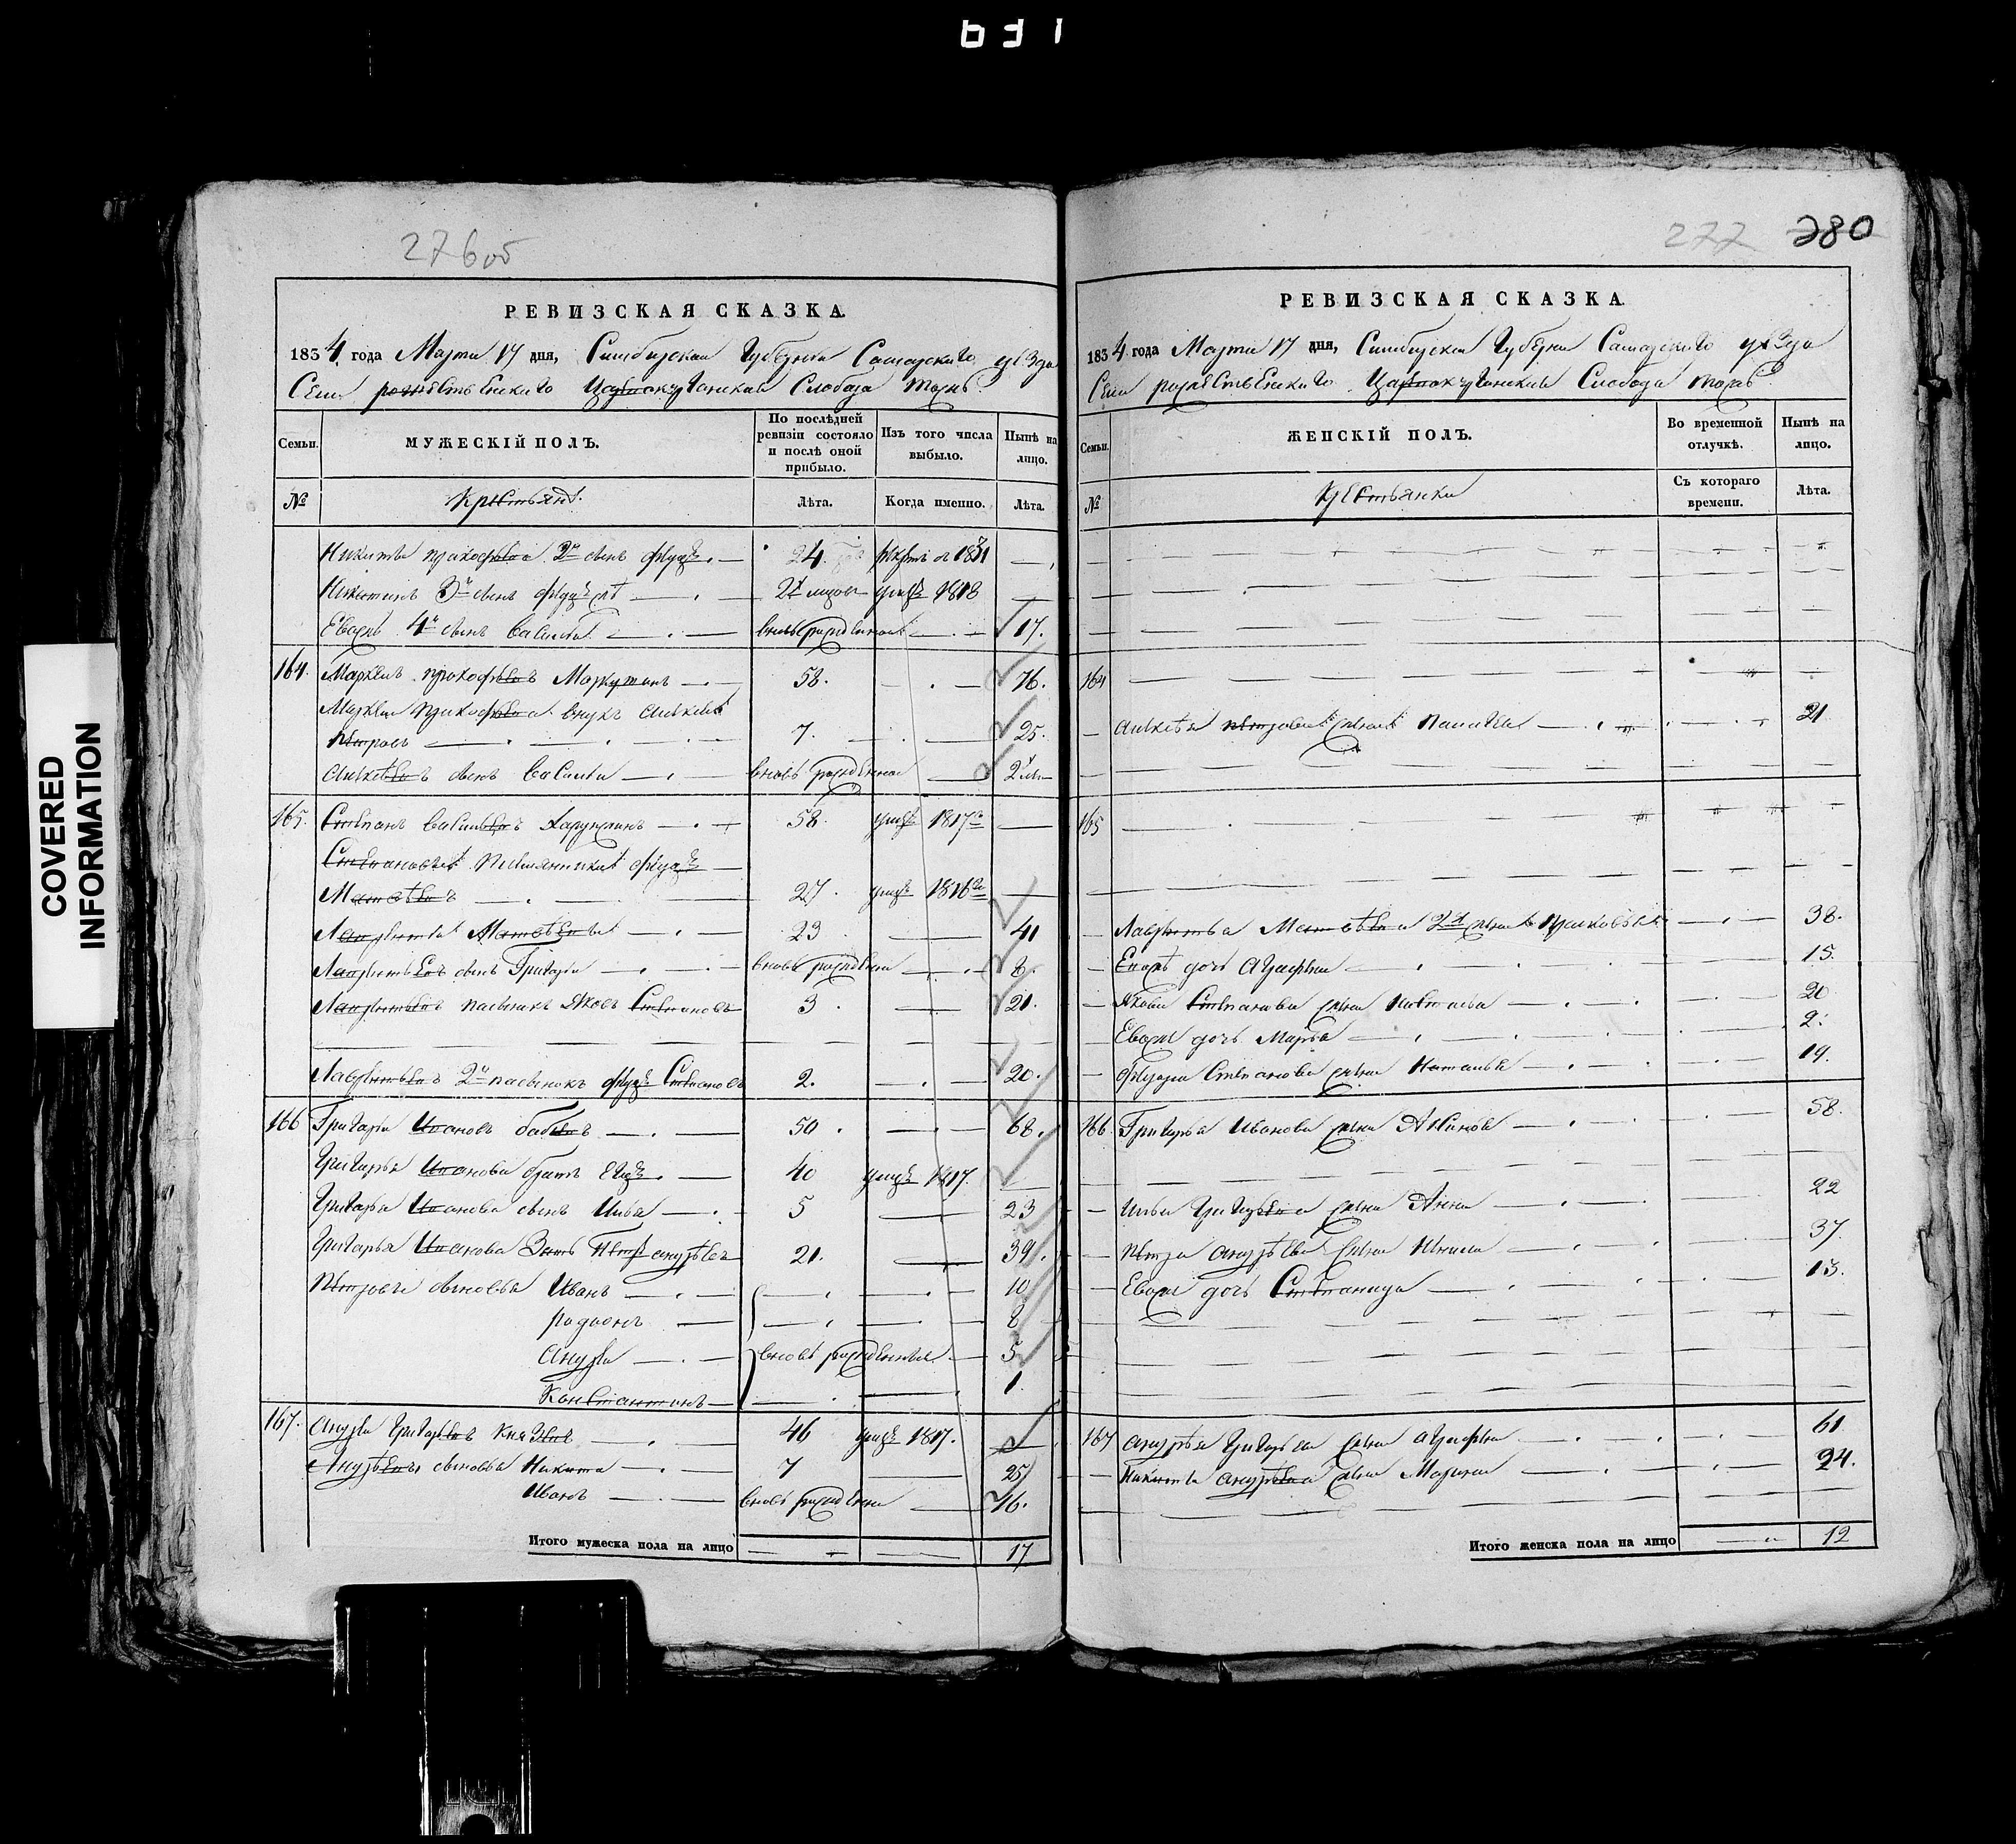 631
276 об
РЕВИЗСКАЯ СКАЗКА.
1834 года Марта 17 дня, Симбирской Губернии Самарского уезда
Села рожественского Слобода тожъ
Семьи.
МУЖЕСКІЙ ПОЛЪ.
По послѣдней ревизіи состояло и послѣ оной прибыло.
Изъ того числа выбыло.
Нынѣ на лицо.
№
Крестьянъ.
Лѣта.
Когда именно.
Лѣта.
Никиты прокофьева 2й сынъ 24. 1831
3й сынъ умре 1818
Евоже 4й сынъ Василей вновь рожденной 17.
164. Маркелъ прокофьевъ 58. 76.
Маркела прокофьева внукъ Алексей
Петровъ 7. 25.
Алексеевъ сынъ Василей вновь рожденной
165. Степанъ Васильевъ 58. умре 1817го
Степановы племянники
Матвеевъ 27. умре 1816го
Лаврентей Матвеевъ 23 41
Лаврентьевъ сынъ Григорей вновь рожденн 8.
Лаврентьевъ пасынокъ Яковъ Степановъ 3. 21.
Лаврентьевъ 2й пасынокъ Степановъ 2. 20.
166 Григорей Ивановъ 50. 68.
Григорья Иванова братъ 40 умре 1817.
Григорья Иванова сынъ Илья 5 23
Григорья Иванова Зять Петръ андреевъ 21. 39.
Петровы сыновья Иванъ 10
родионъ 8
Андрей вновь рожденныя 5
Константинъ 1.
167. Андрей Григорьевъ Князевъ 46 умре 1817.
Андреевы сыновья Никита 7 25
Иванъ вновь рожденн 16.
Итого мужеска пола на лицо 17
277 280
РЕВИЗСКАЯ СКАЗКА.
1834 года Марта 17 дня, Симбирской Губернии Самарского уезда
Села рожественского Слобода тожъ
Семьи.
ЖЕНСКІЙ ПОЛЪ.
Во временной отлучкѣ.
Нынѣ на лицо.
№
Крестьянки
Съ котораго времени.
Лѣта.
164
Алексея Петрова жена 21
165
Лаврентья Матвеева 2я жена 38.
Евоже дочь Аграфена 15.
Якова Степанова жена 20
Евоже дочь Марья 2.
Степанова жена Наталья 19.
166. Григорья Иванова жена 58.
Ильи Григорьева жена Анна 22
Петра андреева жена 37.
Евоже дочь Степанида 13.
167 андрея Григорьева жена аграфена 61
Никиты андреева жена Марина 24.
Итого женска пола на лицо 12
COVERED
INFORMATION